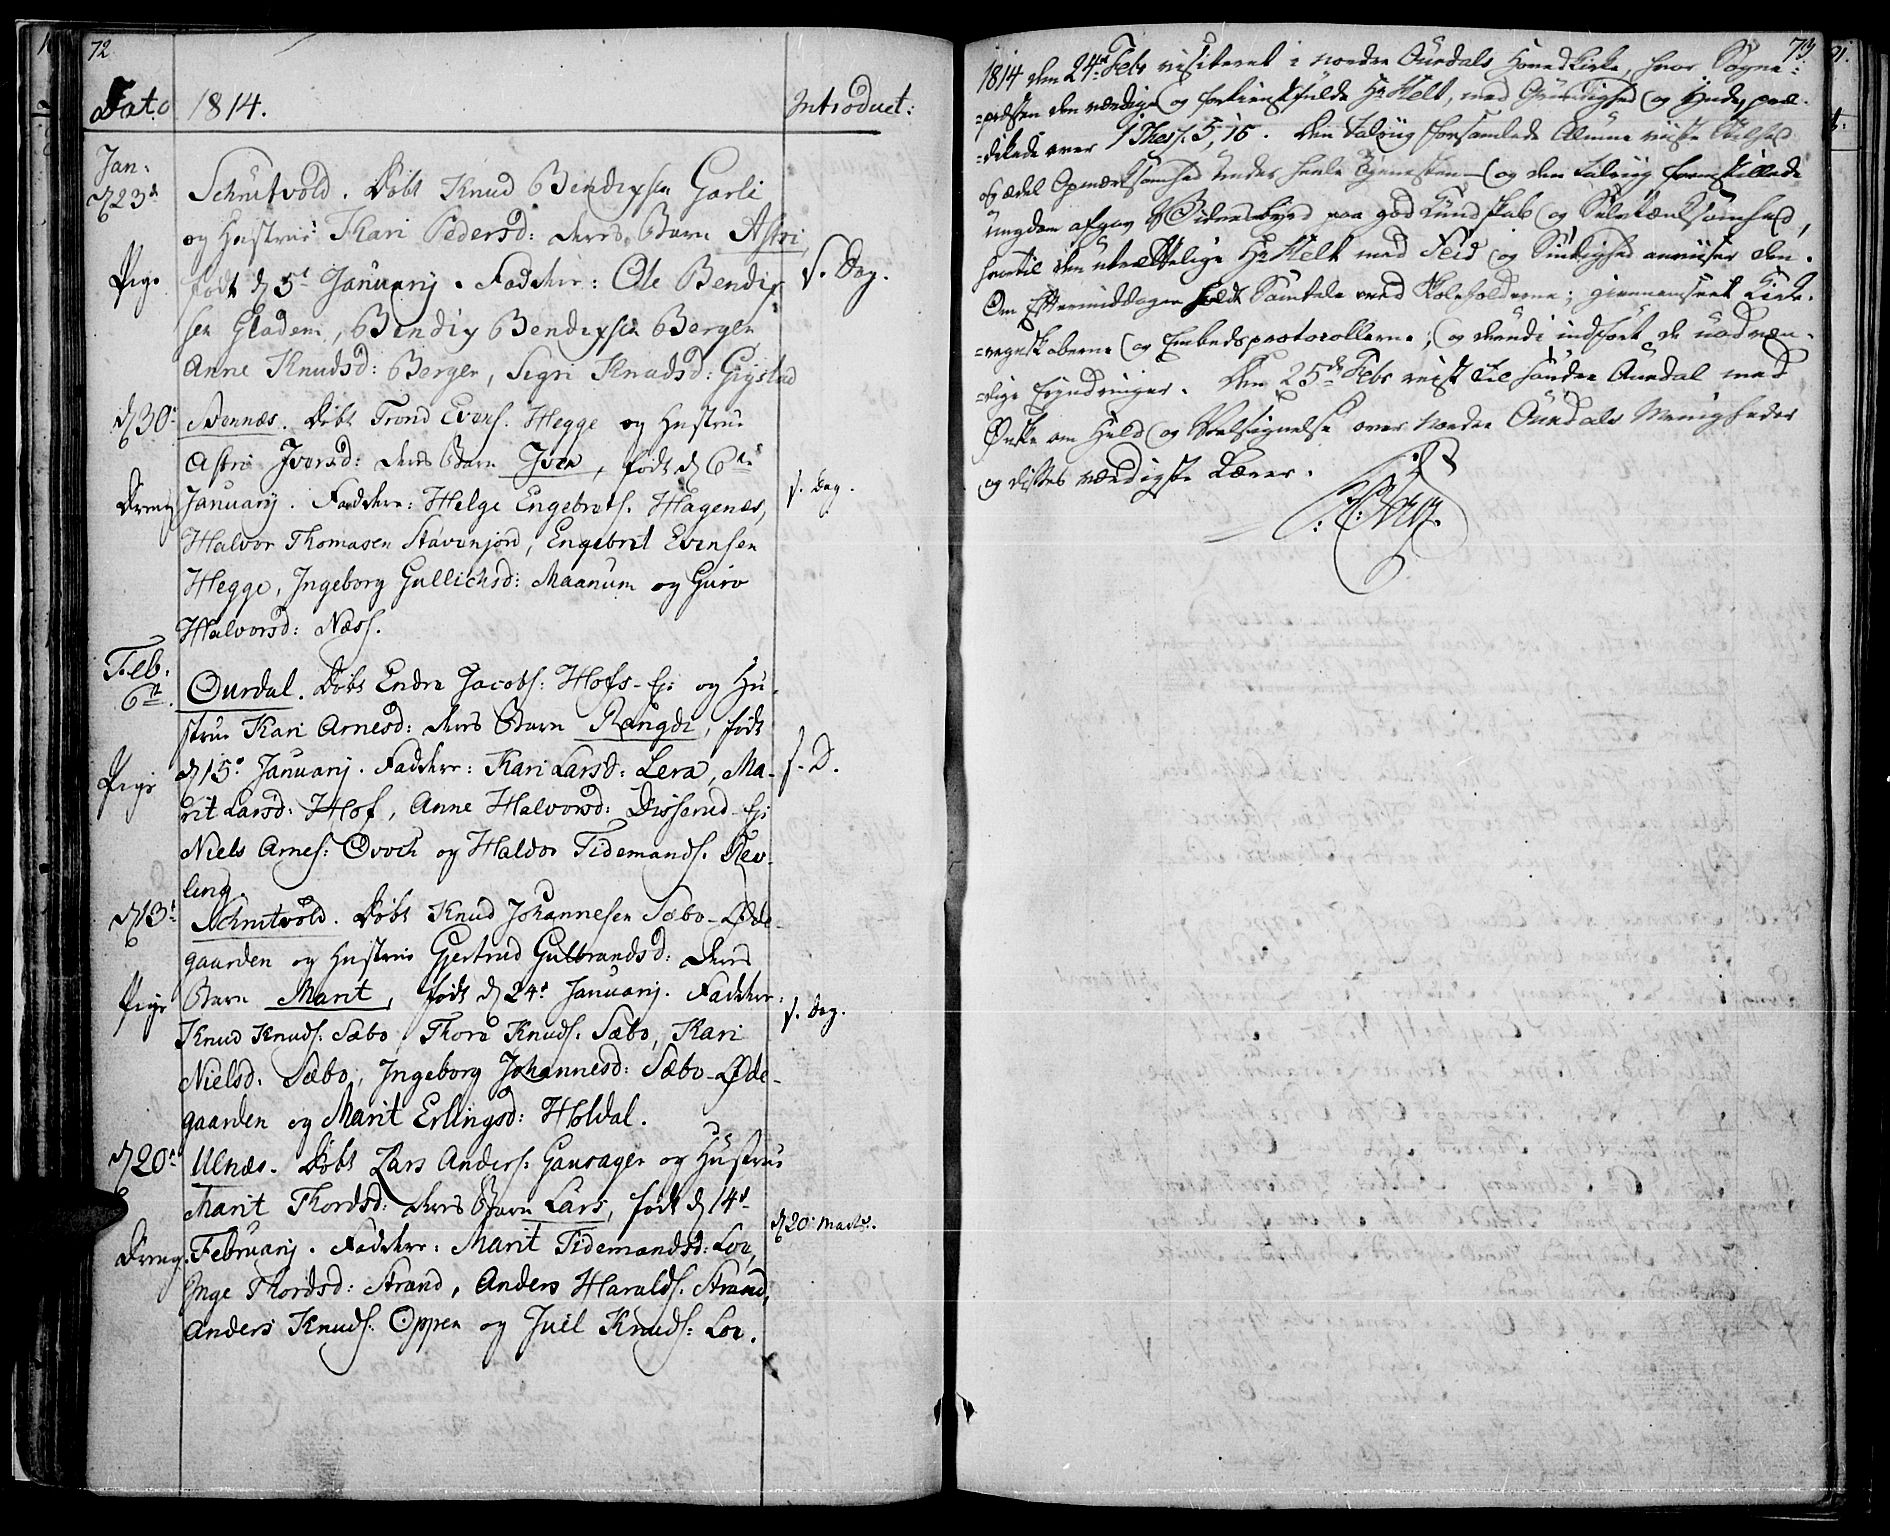 72
Dato 1814. Introduct:
Jan:
d 23d Schrutvold. Döbt Knud Bendixsen Garli
og Hustrue Kari Pedersd: deres Barn Astri,
Pige födt d 5t Januarij. Faddere: Ole Bendix- s. Dag.
sen Gladem, Bendix Bendixsen Bergen,
Anne Knudsd: Bergen, Sigri Knudsd: Gigstad
d 30t Svennæs. Döbt Trond Evens. Hegge og Hustrue
Astri Iversd: deres Barn Iver, födt d 6te
Dreng Januarij. Faddere: Helge Engebrets. Hagenæs, s. Dag.
Halvor Thomasen Stavenjord, Engebret Evensen
Hegge, Ingeborg Gullichsd: Maanum og Guro
Halvorsd: Næss.
Feb:
6te. Ourdal. Döbt Endre Jacobs: Hofs-Ej: og Hu-
strue Kari Arnesd: deres Barn Rangdi, födt
Pige d 15t Januarij. Faddere: Kari Larsd: Lera, Ma- s. D.
rit Larsd: Hof, Anne Halvorsd: Disserud-Ej:
Niels Arnes: Qvoch og Haldor Tidemands.
ling.
d 13t Schrutvold. Döbt Knud Johannesen Sæbo-Øde-
gaarden og Hustrue Gjertrud Gulbrandsd: deres
Pige Barn Marit, födt d 24t Januarij. Faddere: s. Dag.
Knud Knuds: Sæbo, Thore Knuds. Sæbo, Kari
Nielsd: Sæbo, Ingeborg Johannesd: Sæbo-Øde-
gaarden og Marit Erlingsd: Holdal.
d 20t Ulnæs. Döbt Lars Anders: Gausager og Hustrue
Marit Thordsd: deres Barn Lars, födt d 14d d 20t Martj.
Dreng Februarij. Faddere: Marit Tidemandsd: Loe,
Inge Thordsd: Strand, Anders Haralds. Strand,
Anders Knuds: Oppen og Juel Knuds: Loe.
73
1814 den 24de Febr visiteret i nordre Aurdals Hovedkirke, hvor Sogne-
-præsten den værdige og fortienstfulde Hr Kelt, med Grundighed og Ynde præ-
-dikede over 1 Thess. 5, 16. Den talrig forsamlede Almue viste
og ædel Opmærksomhed under heele Tjenesten - og den talrig fremstillede
ungdom afgav Vidnesbyrd paa god Kundskab og Selvtænksomhed,
hvortil den utrættelige Hr Kelt med Flid og Sindighed anviiser den.
Om Eftermiddagen holdt Samtale med Skoleholderne; giennemseet Kirke-
-regnskaberne og Embedsprotocollerne, og derudi indført de nødven-
-dige Erindringer. Den 25de Febr reist til söndre Aurdal med
Ønske om Held og Velsignelse over nordre Aurdals Menigheder
og disses værdigste Lærer.